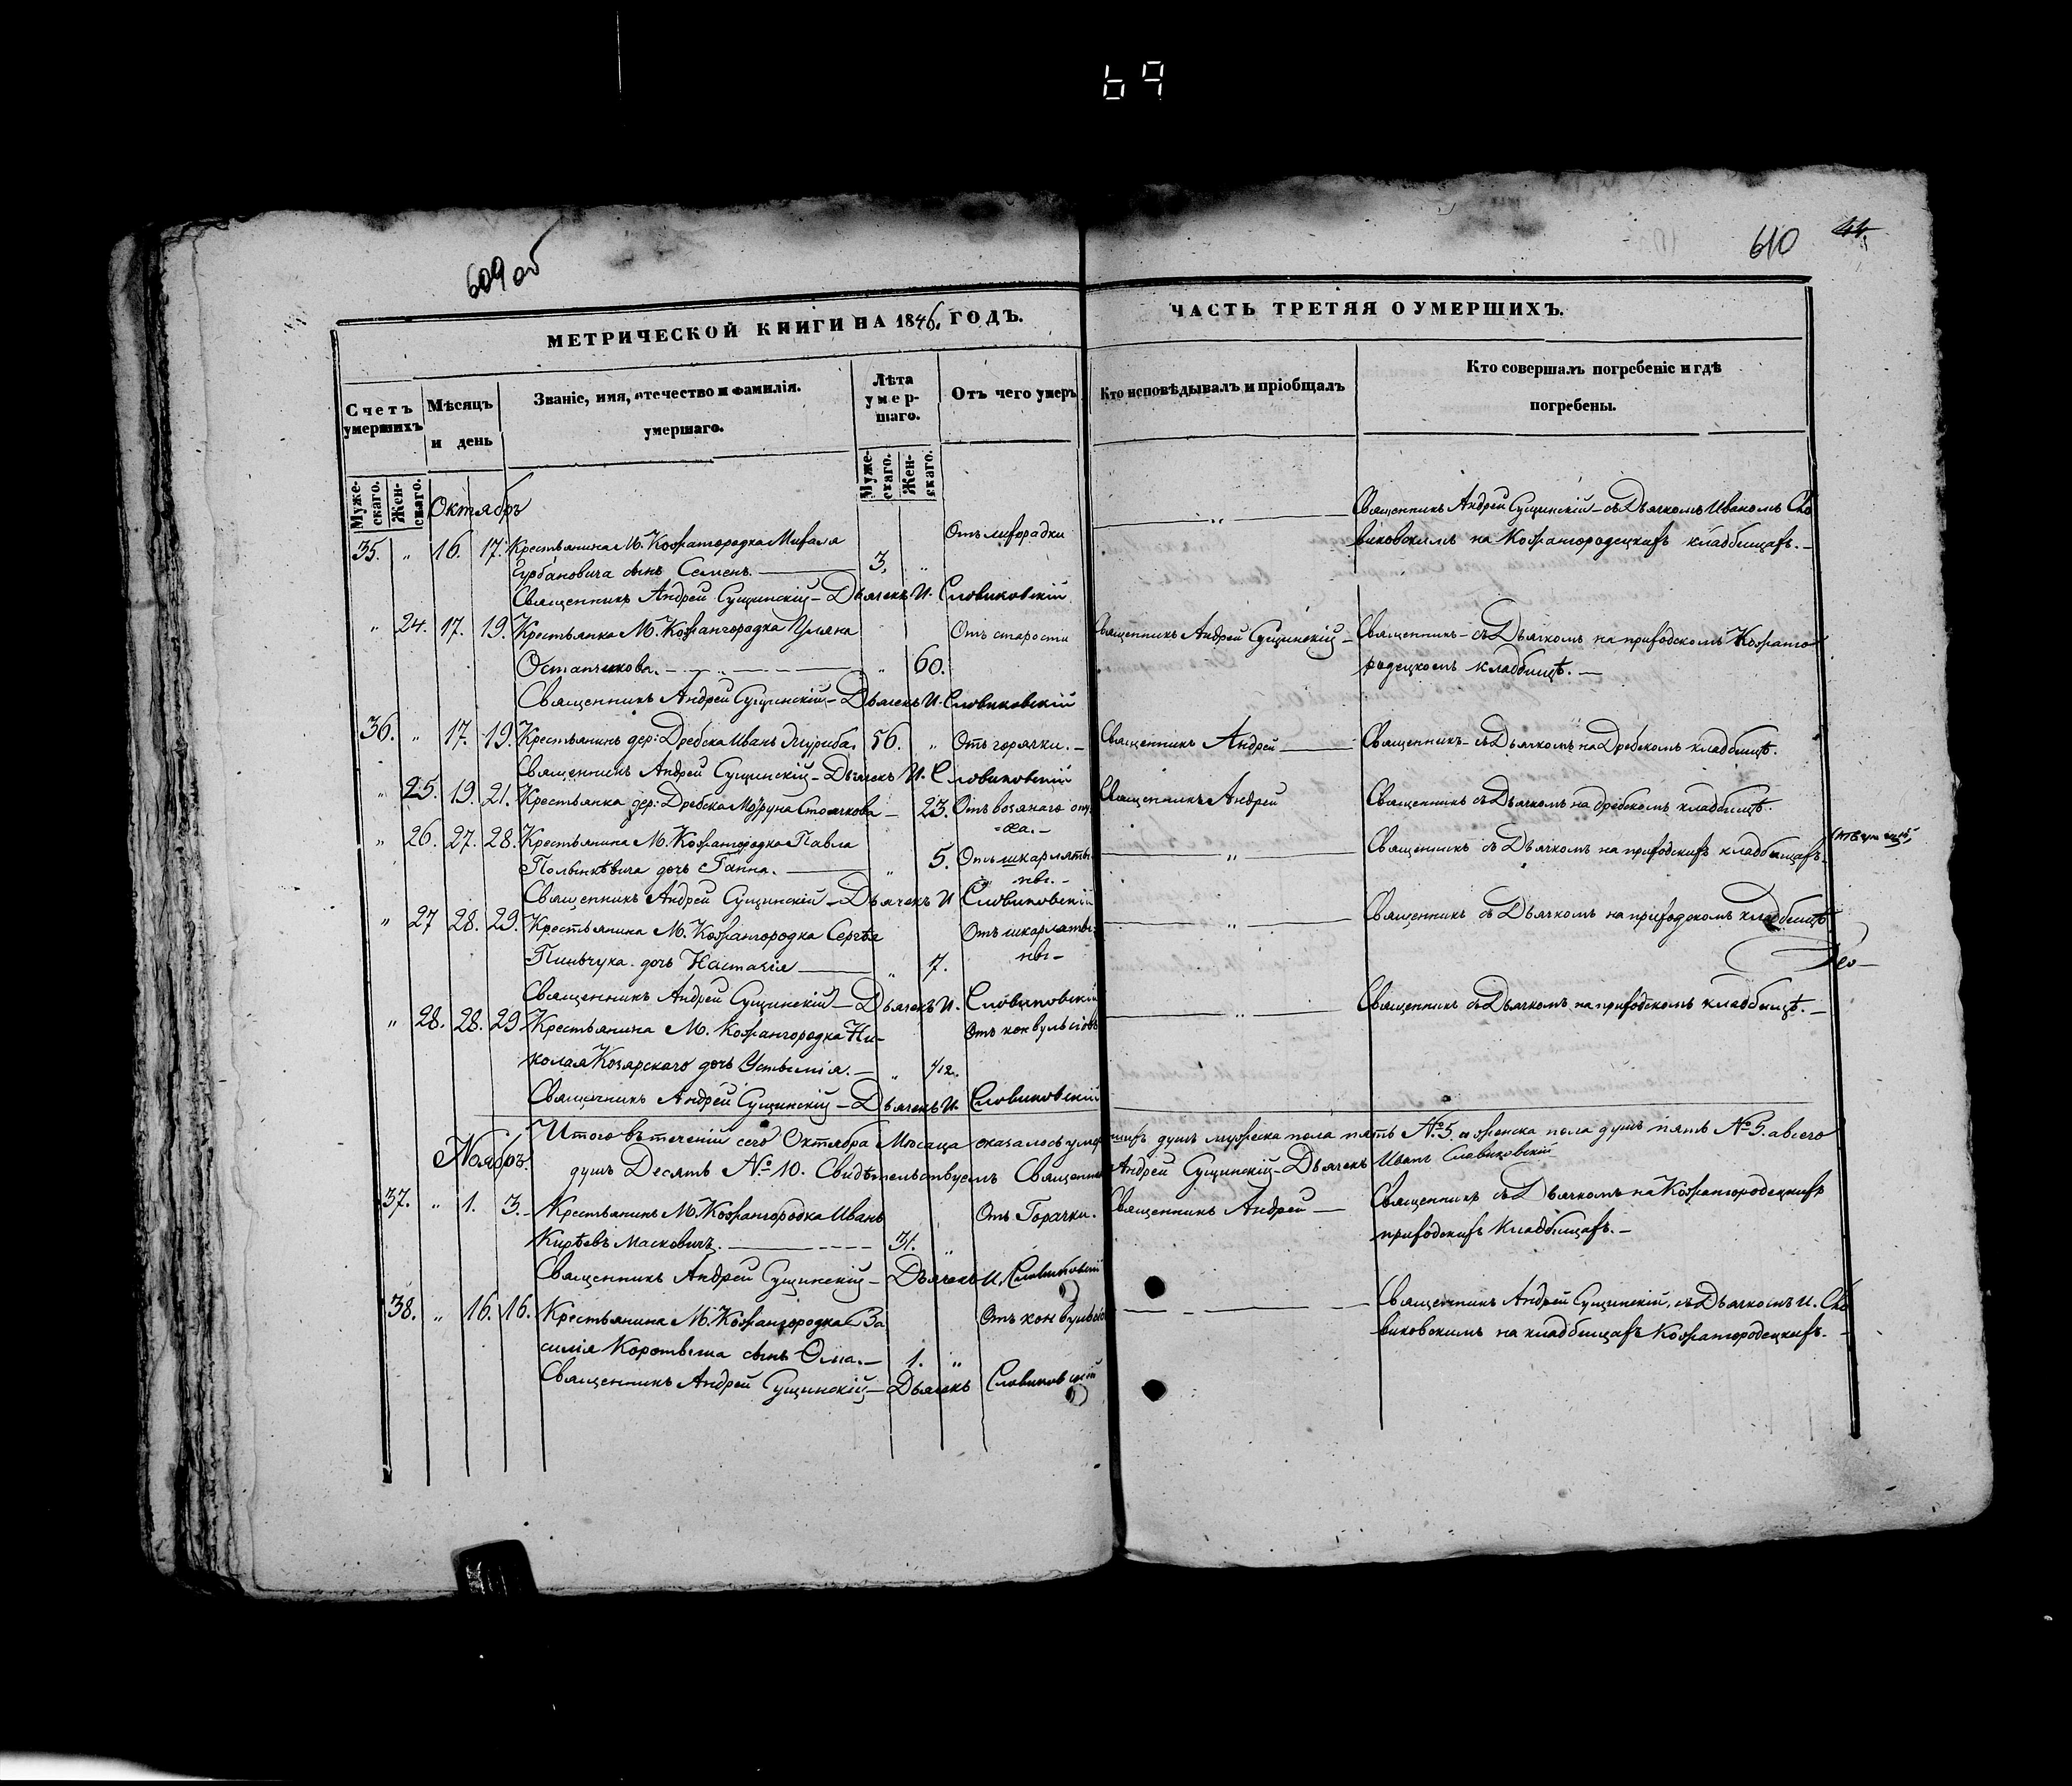 69
609 об
610
44.
МЕТРИЧЕСКОЙ КНИГИ НА 1846. ГОДЪ.
ЧАСТЬ ТРЕТЯЯ О УМЕРШИХЪ.
Счетъ умершихъ
Мѣсяцъ и день
Званіе, имя, отчество и фамилія.
умершаго.
Лѣта умер-
шаго.
Отъ чего умеръ
Кто исповѣдывалъ и пріобщалъ
Кто совершалъ погребеніе и гдѣ
погребены.
Муже-
скаго.
Жен-
скаго.
Муже-
скаго.
Жен-
скаго.
Октябръ
35. „ 16. 17. Крестьянина М. Кожангородка Михала Отъ лихорадки — „ — Священникъ Андрей Сущинскій – съ Дьячкомъ Иваномъ Сло
Гурбановича сынъ Семенъ. — 3. „ виковскимъ на Кожангородецкихъ кладбищахъ. –
Священникъ Андрей Сущинскій – Дьячекъ И. Словиковскій
„ 24. 17. 19. Крестьянка М. Кожангородка Ульяна Отъ старости Священникъ Андрей Сущинскій – Священникъ – съ Дьячкомъ на приходскомъ Кожанго
Остапчикова. — „ 60. родецкомъ кладбищѣ. —
Священникъ Андрей Сущинскій – Дьячекъ И. Словиковскій
36. „ 17. 19. Крестьянинъ дер: Дребска Иванъ 56. „ Отъ горячки. – Священникъ Андрей — Священникъ – съ Дьячкомъ на Дребскомъ кладбищѣ.
Священникъ Андрей Сущинскій – Дьячекъ И. Словиковскій
„ 25. 19. 21. Крестьянка дер: Дребска Стоячкова – 23. Отъ водянаго опу Священникъ Андрей Священникъ съ Дьячкомъ на дребскомъ кладбищѣ.
„ 26. 27. 28. Крестьянина М. Кожангородка Павла — „ — Священникъ съ Дьячкомъ на приходскихъ кладбищахъ.
дочь Ганна. — „ 5. Отъ шкарляты
ны. –
Священникъ Андрей Сущинскій – Дьячекъ И Словиковскій
„ 27 28. 29. Крестьянина М. Кожангородка Сергѣя Отъ шкарляты — „ — Священникъ съ Дьячкомъ на приходскомъ кладбищѣ
Пинчука дочь Настасія — „ 7. ны –
Священникъ Андрей Сущинскій – Дьячекъ И. Словиковскій
„ 28. 28. 29 Крестьянина М. Кожангородка Ни- Отъ конвульсіовъ — „ — Священникъ съ Дьячкомъ на приходскомъ кладбищѣ. –
колая Козярскаго дочь Устымія. – „ 1/12.
Священникъ Андрей Сущинскій – Дьячекъ И. Словиковскій
Итого въ теченіи сего Октября Мѣсяца оказалось умершихъ душъ мужеска пола пять № 5. а женска пола душъ пять № 5. а всего
Ноябръ. душъ Десять № 10. Свидѣтельствуемъ Священникъ Андрей Сущинскій – Дьячекъ Иванъ Словиковскій
37. „ 1. 3. – Крестьянинъ М. Кожангородка Иванъ Отъ Горачки. Священникъ Андрей — Священникъ съ Дьячкомъ на Кожангородецкихъ
Кирѣевъ Масковичъ. — 31. „ приходскихъ Кладбищахъ. –
Священникъ Андрей Сущинскій – Дьячекъ И. Словиковскій
38. „ 16. 16. Крестьянина М. Кожангородка Ва Отъ конвульсіо — Священникъ Андрей Сущинскій, съ Дьячкомъ И. Сло
силія сынъ Ѳома. – 1. „ виковскимъ на кладбищахъ Кожангородецкихъ. –
Священникъ Андрей Сущинскій – Дьячекъ Словиковскій